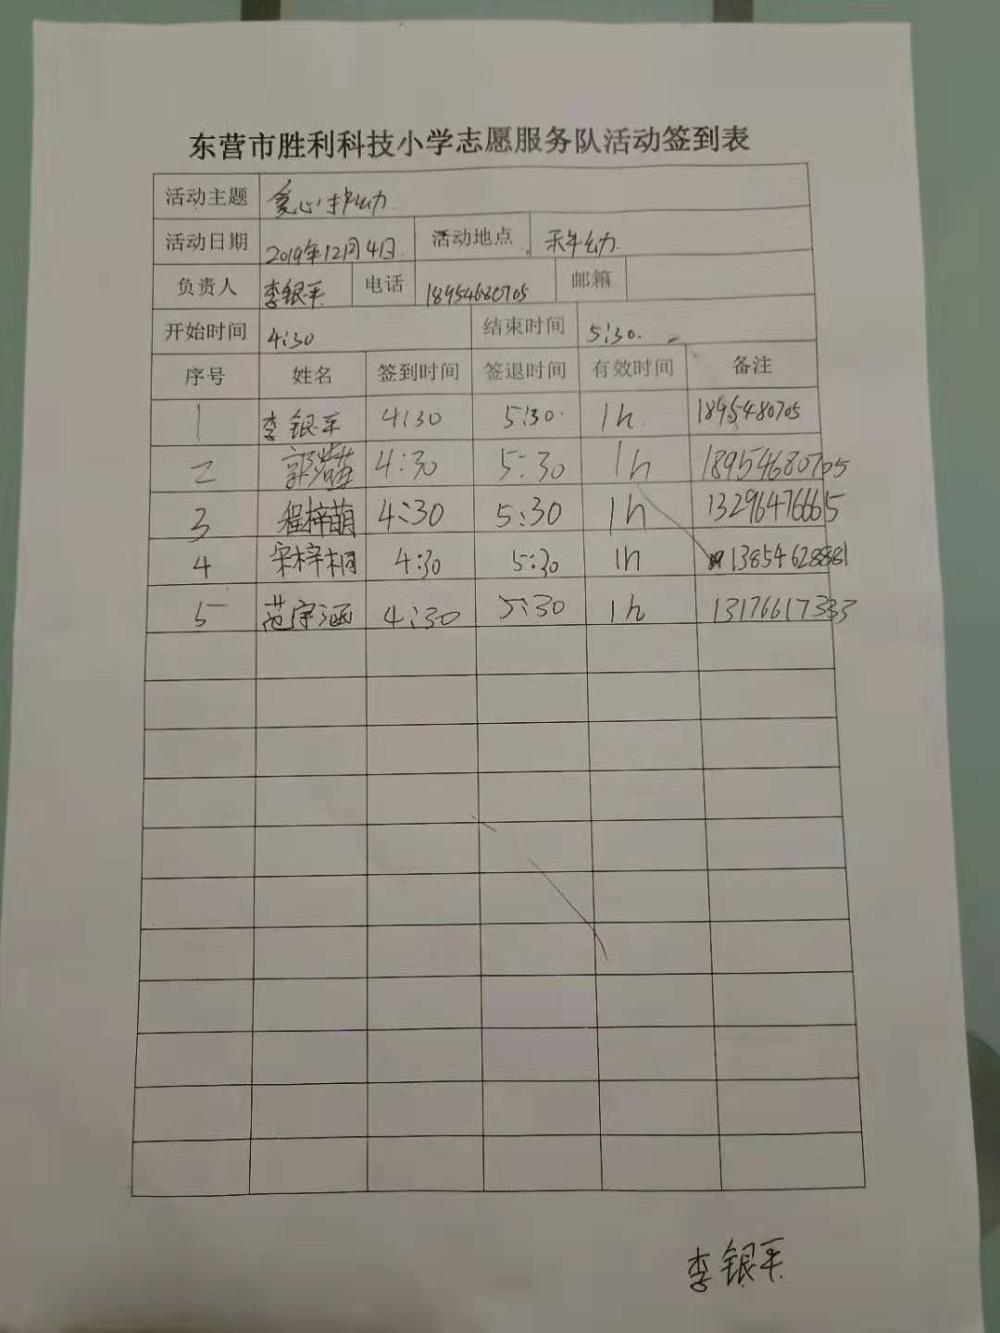 东营市胜利科技小学志愿服务队活动签到表
活动主题 爱心护幼
活动日期 2019年12月4日 活动地点 禾年幼
负责人 李银平 电话 18954680705 邮箱
开始时间 4:30 结束时间 5:30.
序号 姓名 签到时间 签退时间 有效时间 备注
1 李银平 4:30 5:30. 1h. 1895480705
2 4:30 5:30 1h 18954680705
3 程梓萌 4:30 5:30 1h 13296476665
4 宋梓桐 4:30 5:30 1h 13854628881
5 范宇涵 4:30 5:30 1h 13176617333
李银平